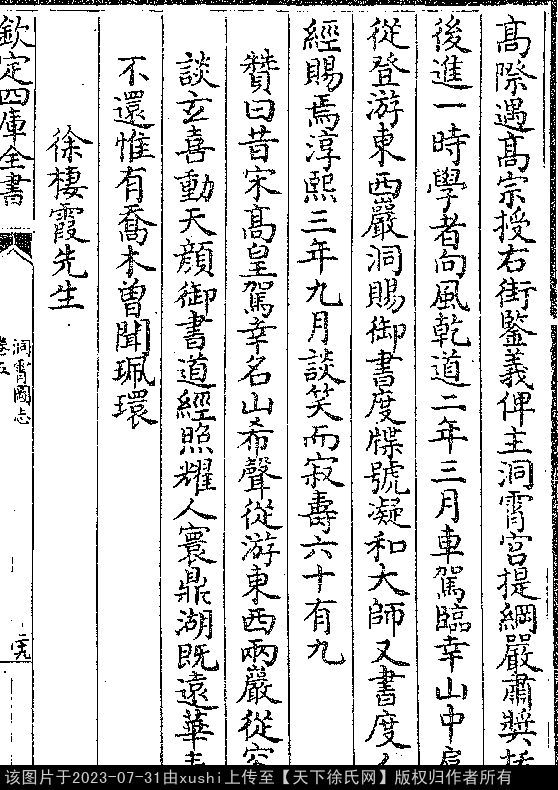 髙際遇髙宗授右街鑒義俾主洞霄宫提綱嚴肅奬
後進一時學者向風乾道二年三月車駕臨幸山中扈
從登游東西巖洞賜御書度牒號凝和大師又書度
經賜焉淳熙三年九月談笑而寂壽六十有九
贊曰昔宋髙皇駕幸名山希聲從游東西兩巖從容
談玄喜動天顔御書道經照耀人寰鼎湖既遠華
不還惟有喬木曽聞珮環
徐棲霞先生
欽定四庫全書
洞霄圖志
卷五
二十九
该图片于2023-07-31由xushi上传至【天下徐氏网】版权归作者所有